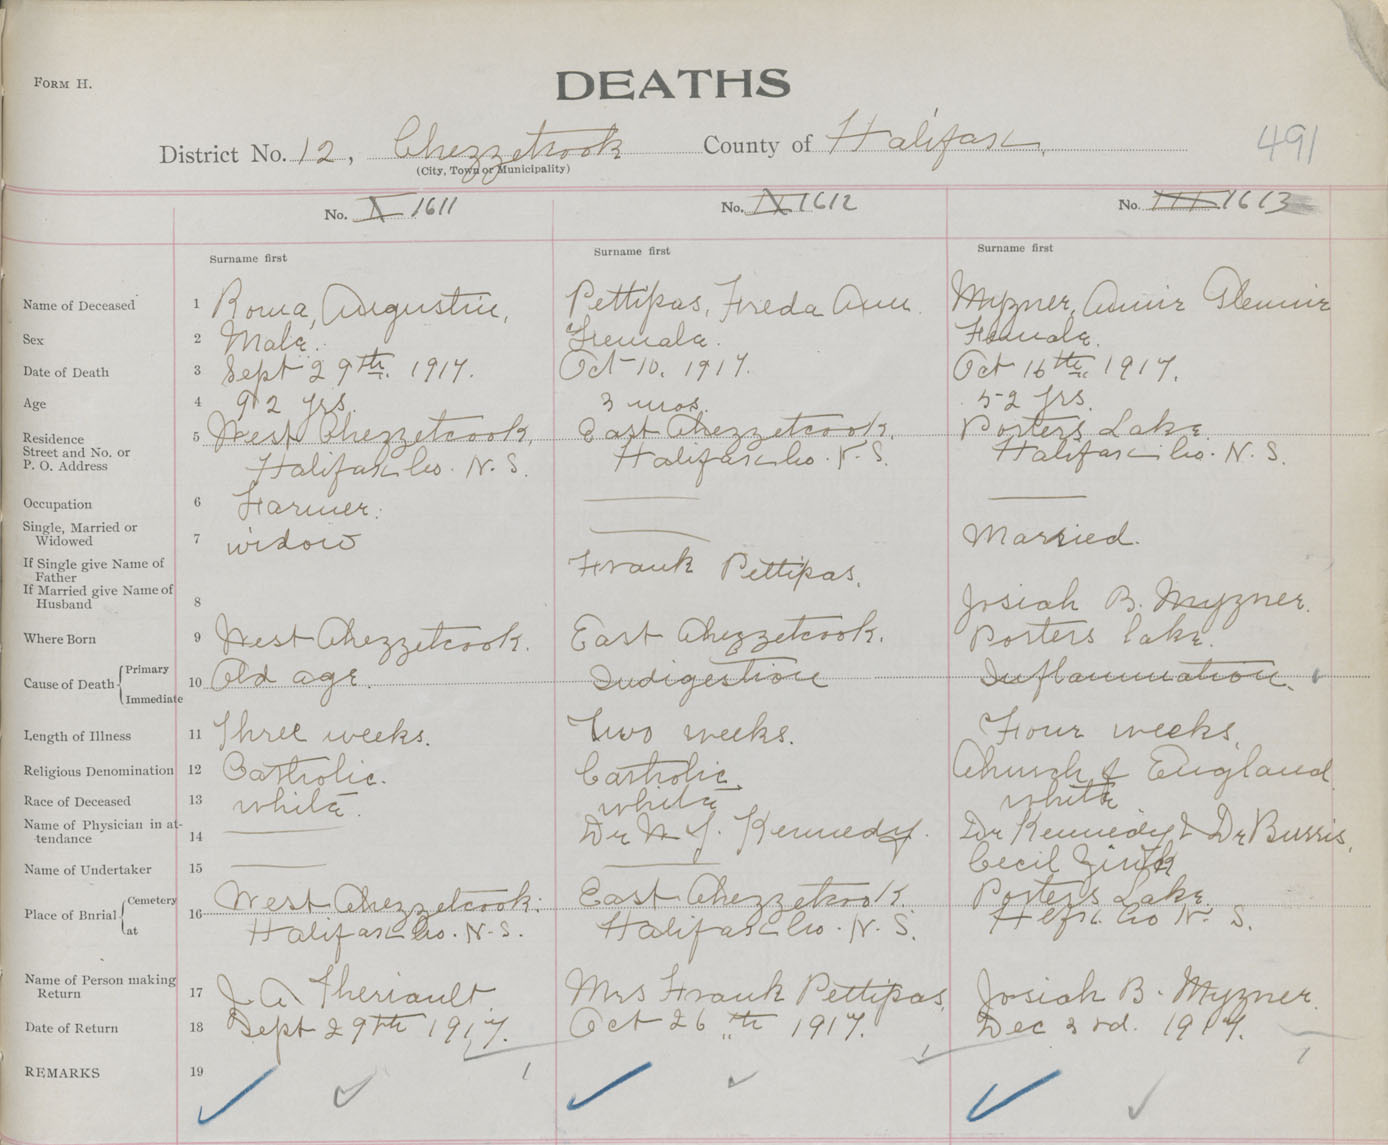 FORM H.
DEATHS
District No. 12, Chezzetcook County of Halifax
491
(City, Town or Municipality)
No. X 1611 No. IX 1612 No. III 1613
Surname first Surname first Surname first
Name of Deceased 1 Roma, Augustin, Pettipas, Freda Ann Myzner, Annie Glennie
Sex 2 Male. Female. Female.
Date of Death 3 Sept 29th. 1917. Oct 10. 1917. Oct 16th 1917.
Age 4 92 yrs. 3 mos. 52 yrs.
Residence 5 West Chezzetcook, East Chezzetcook, Porters Lake
Street and No. or
P. O. Address Halifax Co. N. S. Halifax Co. N. S. Halifax Co. N. S.
Occupation 6 Farmer.
Single, Married or
Widowed 7 widow Married.
If Single give Name of
Father Frank Pettipas,
If Married give Name of
Husband 8 Josiah B. Myzner.
Where Born 9 West Chezzetcook. East Chezzetcook. Porters Lake.
Cause of Death Primary 10 Old age. Indigestion Inflammation.
Immediate
Length of Illness 11 Three weeks. Two weeks. Four weeks,
Religious Denomination 12 Catholic. Catholic Church of England
Race of Deceased 13 white. white white
Name of Physician in at-
tendance 14 Dr Kennedy. Dr Kennedy & Dr Burris,
Name of Undertaker 15 Cecil Zink
Place of Burial Cemetery 16 West Chezzetcook. East Chezzetcook. Porters Lake.
at Halifax Co. N. S. Halifax Co. N. S. Hlfx. Co N. S.
Name of Person making
Return 17 J. A. Theriault Mrs Frank Pettipas, Josiah B. Myzner.
Date of Return 18 Sept 29th 1917. Oct 26th 1917. Dec 3rd. 1917.
REMARKS 19